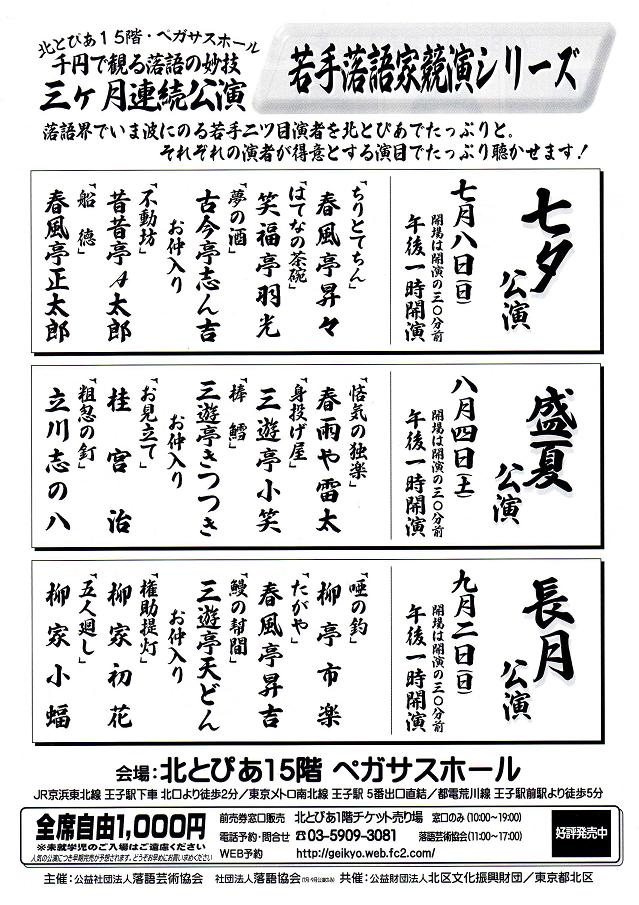 北とぴあ15階・ペガサスホール
千円で観る落語の妙技
三ヶ月連続公演
若手落語家競演シリーズ
落語界でいま波にのる若手二ツ目演者を北とぴあでたっぷりと。
それぞれの演者が得意とする演目でたっぷり聴かせます！
七夕
公演
七月八日(日)
開場は開演の三〇分前
午後一時開演
「ちりとてちん」
春風亭昇々
「はてなの茶碗」
笑福亭羽光
「夢の酒」
古今亭志ん吉
お仲入り
「不動坊」
昔昔亭A太郎
「船徳」
春風亭正太郎
盛夏
公演
八月四日(土)
開場は開演の三〇分前
午後一時開演
「悋気の独楽」
春雨や雷太
「身投げ屋」
三遊亭小笑
「棒鱈」
三遊亭きつつき
お仲入り
「お見立て」
桂宮治
「粗忽の釘」
立川志の八
長月
公演
九月二日(日)
開場は開演の三〇分前
午後一時開演
「唖の釣」
柳亭市楽
「たがや」
春風亭昇吉
「鰻の幇間」
三遊亭天どん
お仲入り
「権助提灯」
柳家初花
「五人廻し」
柳家小蝠
会場：北とぴあ15階 ペガサスホール
JR京浜東北線 王子駅下車 北口より徒歩2分／東京メトロ南北線 王子駅 5番出口直結／都電荒川線 王子駅前駅より徒歩5分
全席自由1,000円
※未就学児のご入場はご遠慮ください
人気の公演につき早期完売が予想されます。どうぞお早めにお買い求めください
前売券窓口販売 北とぴあ1階チケット売り場 窓口のみ (10:00〜19:00)
電話予約・問合せ ☎03-5909-3081 落語芸術協会(11:00〜17:00)
WEB予約 http://geikyo.web.fc2.com/
好評発売中
主催：公益社団法人落語芸術協会 社団法人落語協会 共催：公益財団法人北区文化振興財団／東京都北区